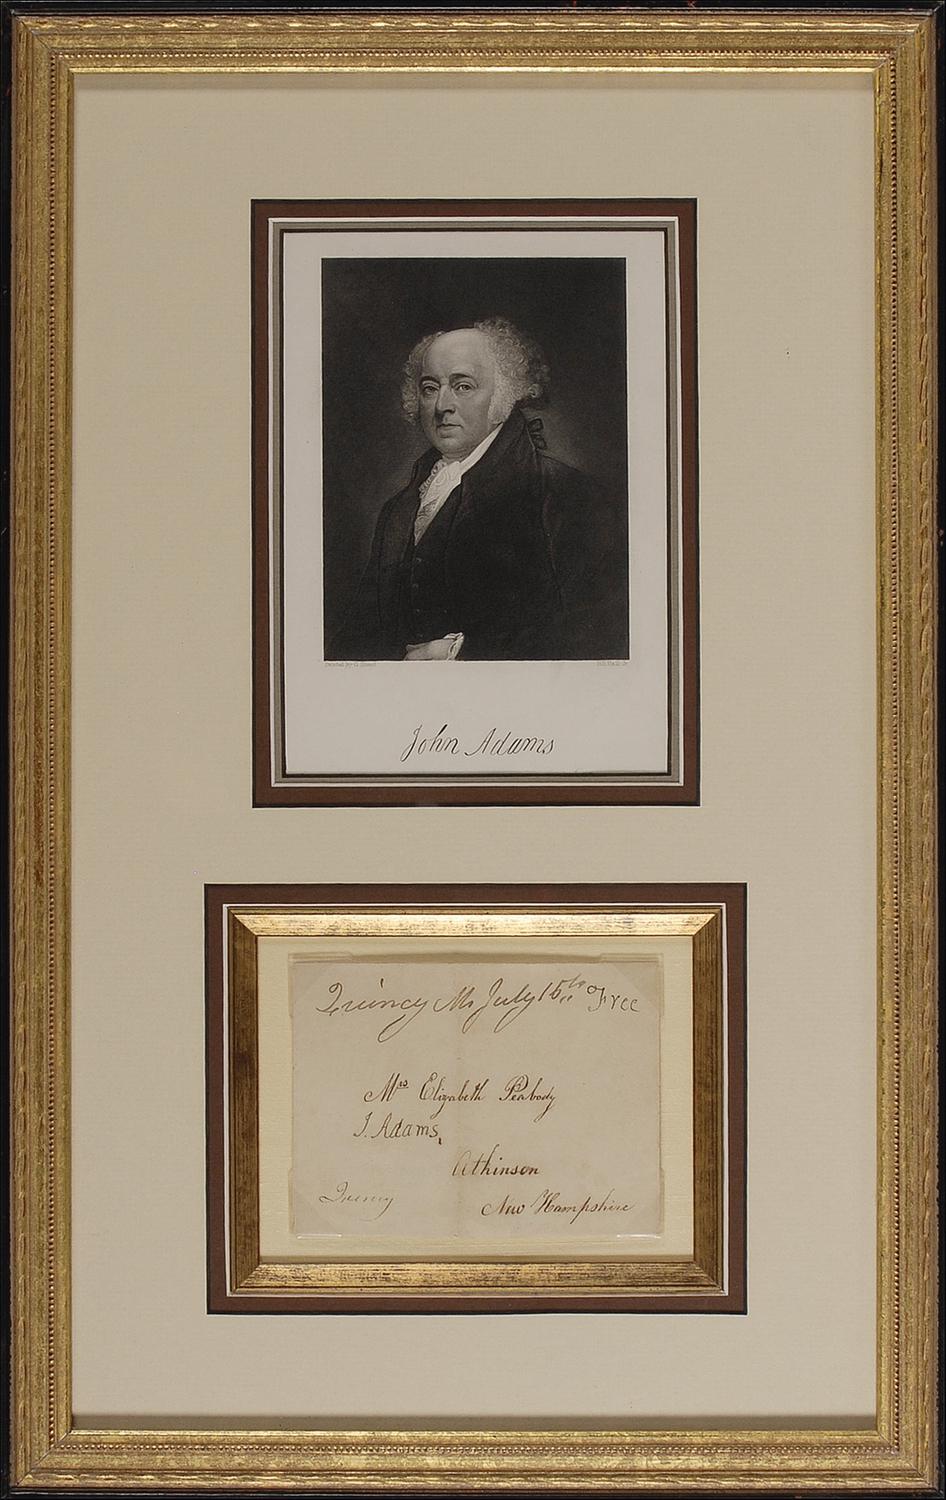 Painted by G. Stuart
John Adams
Quincy Ms July 15th Free
Mrs Elizabeth Peabody
J. Adams,
Atkinson
Quincy
New Hampshire